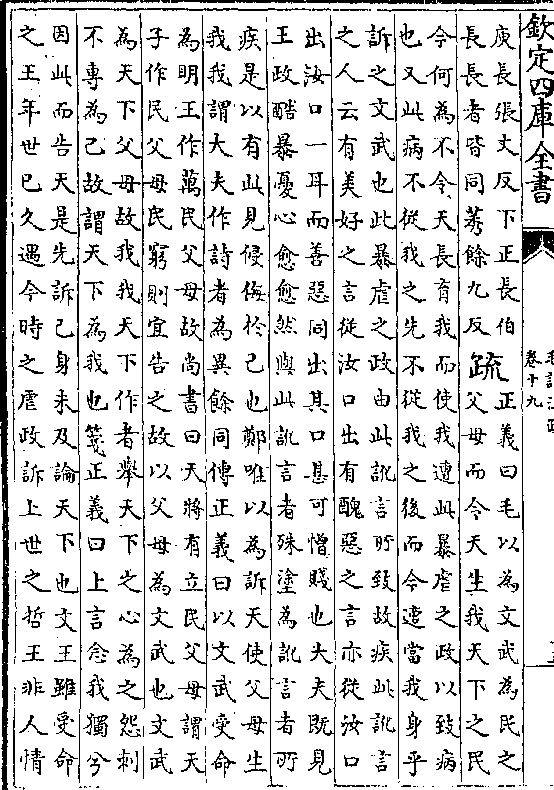 欽定四庫全書
毛詩注疏
卷十九
庾長張丈反下正長伯
長長者皆同莠餘九反
疏
正義曰毛以為文武為民之
父母而今天生我天下之民
今何為不令天長育我而使我遭此暴虐之政以致病
也又此病不從我之先不從我之後而今遭當我身乎
訴之文武也此暴虐之政由此訛言所致故疾此訛言
之人云有美好之言從汝口出有醜惡之言亦從汝口
出汝口一耳而善惡同出其口甚可憎賤也大夫既見
王政酷暴憂心愈愈然與此訛言者殊塗為訛言者所
疾是以有此見侵侮於己也鄭唯以為訴天使父母生
我我謂大夫作詩者為異餘同傳正義曰以文武受命
為明王作萬民父母故尚書曰天將有立民父母謂天
子作民父母民窮則宜告之故以父母為文武也文武
為天下父母故我我天下作者舉天下之心為之怨刺
不專為己故謂天下為我也箋正義曰上言念我獨兮
因此而告天是先訴己身未及論天下也文王雖受命
之王年世已久遇今時之虐政訴上世之哲王非人情